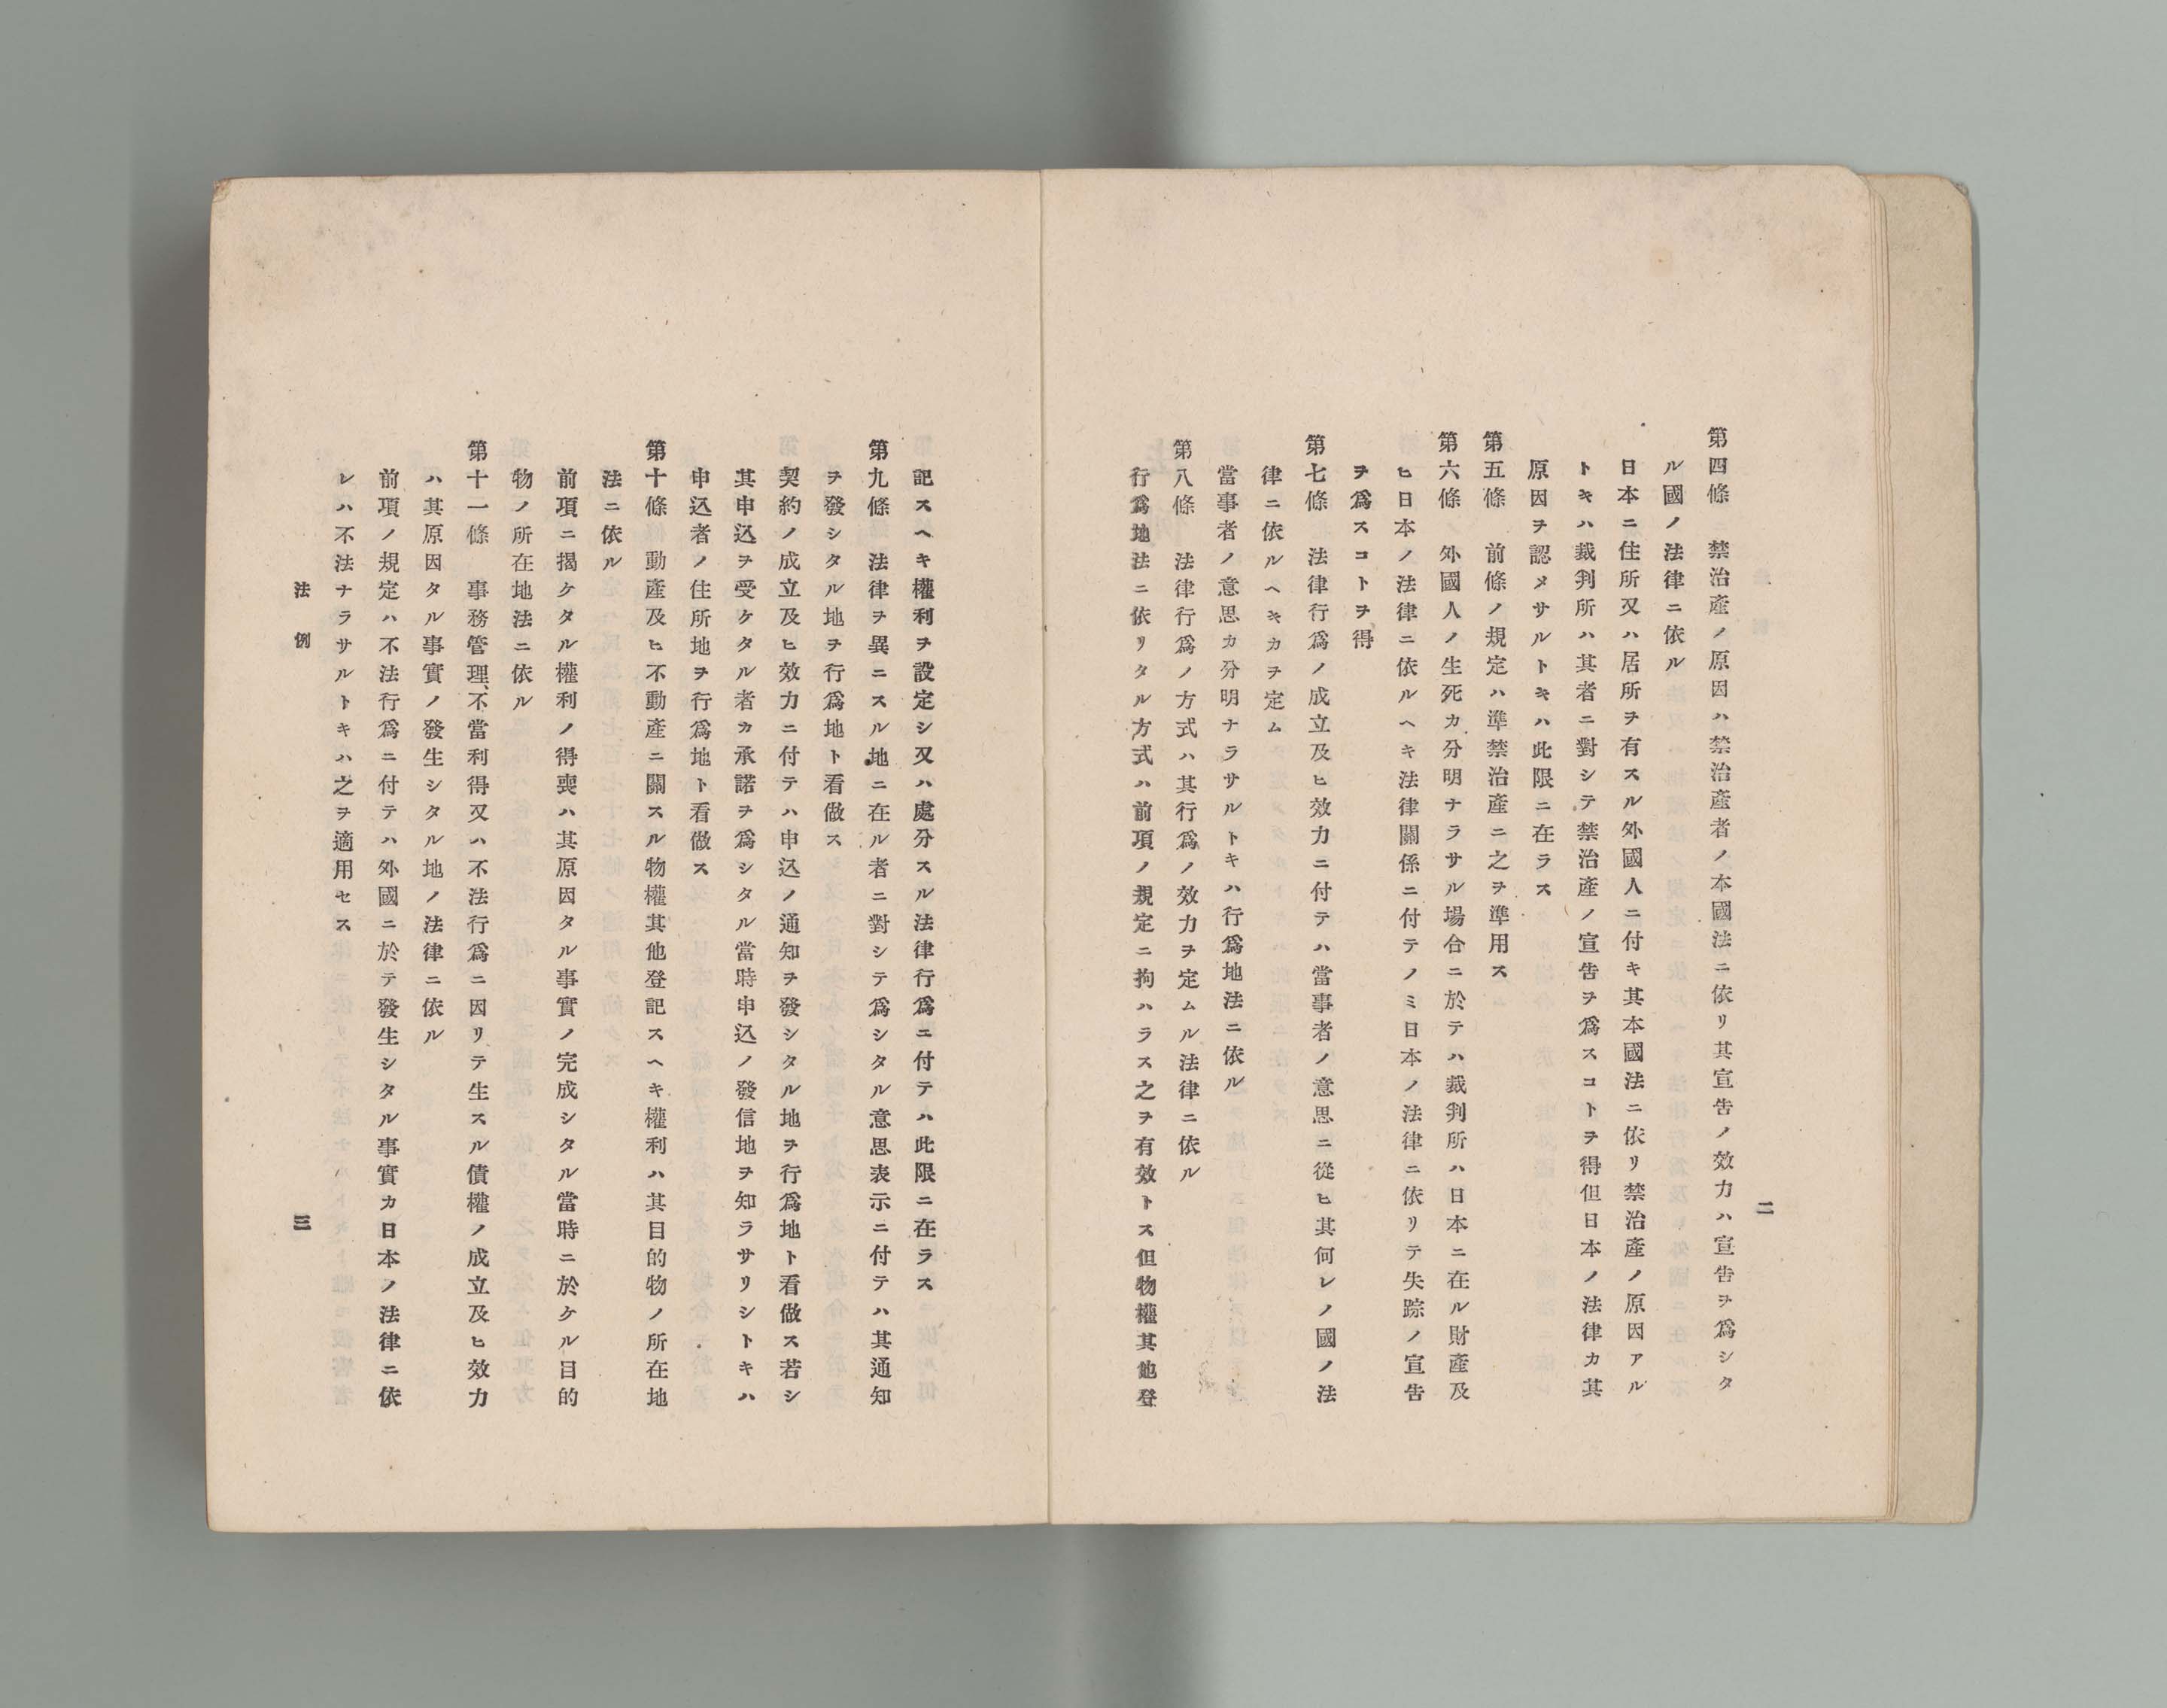 二
第四條　禁治產ノ原因ハ禁治產者ノ本國法ニ依リ其宣告ノ效力ハ宣告ヲ爲シタ
ル國ノ法律ニ依ル
日本ニ住所又ハ居所ヲ有スル外國人ニ付キ其本國法ニ依リ禁治產ノ原因アル
トキハ裁判所ハ其者ニ對シテ禁治產ノ宣告ヲ爲スコトヲ得但日本ノ法律カ其
原因ヲ認メサルトキハ此限ニ在ラス
第五條　前條ノ規定ハ準禁治產ニ之ヲ準用ス
第六條　外國人ノ生死カ分明ナラサル場合ニ於テハ裁判所ハ日本ニ在ル財產及
ヒ日本ノ法律ニ依ルヘキ法律關係ニ付テノミ日本ノ法律ニ依リテ失踪ノ宣告
ヲ爲スコトヲ得
第七條　法律行爲ノ成立及ヒ效力ニ付テハ當事者ノ意思ニ從ヒ其何レノ國ノ法
律ニ依ルヘキカヲ定ム
當事者ノ意思カ分明ナラサルトキハ行爲地法ニ依ル
第八條　法律行爲ノ方式ハ其行爲ノ效力ヲ定ムル法律ニ依ル
行爲地法ニ依リタル方式ハ前項ノ規定ニ拘ハラス之ヲ有效トス但物權其他登
記スヘキ權利ヲ設定シ又ハ處分スル法律行爲ニ付テハ此限ニ在ラス
第九條　法律ヲ異ニスル地ニ在ル者ニ對シテ爲シタル意思表示ニ付テハ其通知
ヲ發シタル地ヲ行爲地ト看做ス
契約ノ成立及ヒ效力ニ付テハ申込ノ通知ヲ發シタル地ヲ行爲地ト看做ス若シ
其申込ヲ受ケタル者カ承諾ヲ爲シタル當時申込ノ發信地ヲ知ラサリシトキハ
申込者ノ住所地ヲ行爲地ト看做ス
第十條　動產及ヒ不動產ニ關スル物權其他登記スヘキ權利ハ其目的物ノ所在地
法ニ依ル
前項ニ揭ケタル權利ノ得喪ハ其原因タル事實ノ完成シタル當時ニ於ケル目的
物ノ所在地法ニ依ル
第十一條　事務管理、不當利得又ハ不法行爲ニ因リテ生スル債權ノ成立及ヒ效力
ハ其原因タル事實ノ發生シタル地ノ法律ニ依ル
前項ノ規定ハ不法行爲ニ付テハ外國ニ於テ發生シタル事實カ日本ノ法律ニ依
レハ不法ナラサルトキハ之ヲ適用セス
法例
三